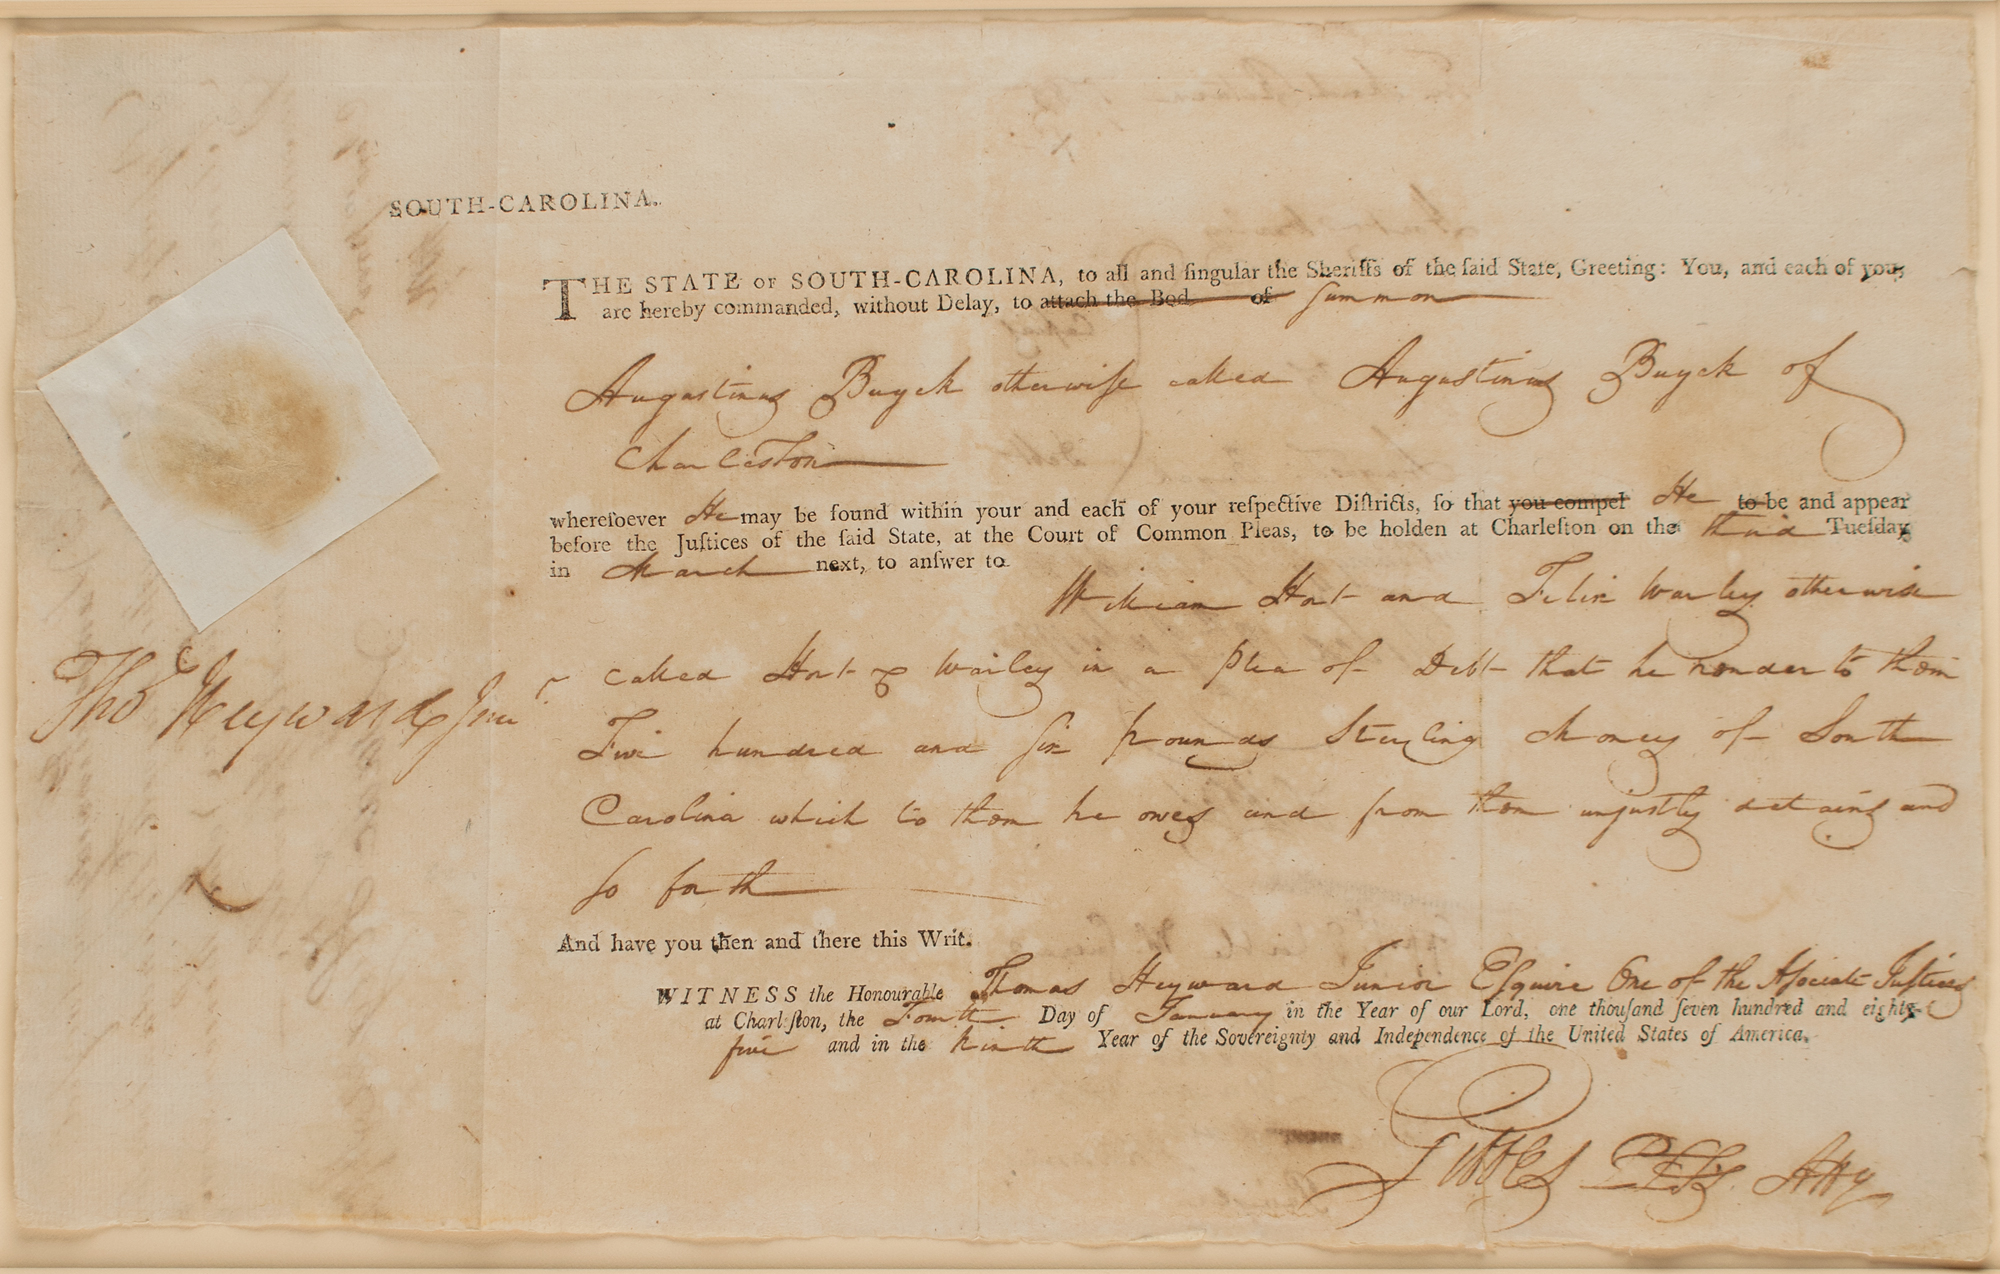 SOUTH-CAROLINA.
THE STATE OF SOUTH-CAROLINA, to all and ſingular the Sheriffs of the ſaid State, Greeting: You, and each of you,
are hereby commanded, without Delay, to attach the Bod of Summon
Augustinus Buyck otherwiſe called Augustinus Buyck of
Charleston
whereſoever He may be found within your and each of your reſpective Diſtricts, ſo that you compel He to be and appear
before the Juſtices of the ſaid State, at the Court of Common Pleas, to be holden at Charleſton on the third Tueſday
in March next, to anſwer to
William Hort and Felix Warley otherwise
called Hort & Warley in a plea of Debt that he render to them
Five hundred and ſix pounds Sterling Money of South
Carolina which to them he owes and from them unjustly detains and
ſo forth
And have you then and there this Writ.
WITNESS the Honourable Thomas Heyward Junior Eſquire One of the Aſsociate Justices
at Charleſton, the Fourth Day of January in the Year of our Lord, one thouſand ſeven hundred and eighty
five and in the Ninth Year of the Sovereignty and Independence of the United States of America.
Tho Heyward Junr
Atty